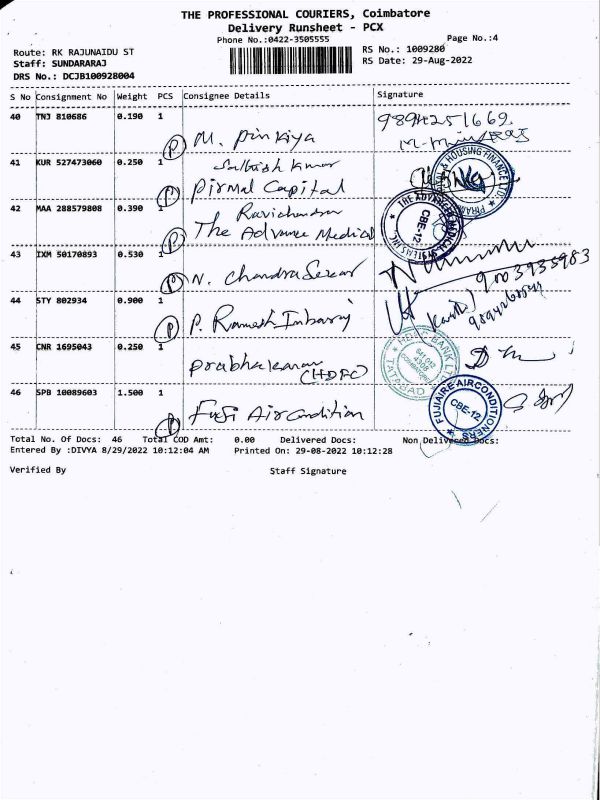 THE PROFESSIONAL COURIERS, Coimbatore
Delivery Runsheet - PCX
Phone No.:0422-3505555
Page No.:4
Route: RK RAJUNAIDU ST
RS No.: 1009280
Staff: SUNDARARAJ
RS Date: 29-Aug-2022
DRS No.: DCJB100928004
S No Consignment No Weight PCS Consignee Details Signature
40 TNJ 810686 0.190 1
(P) M. Pinkiya
41 KUR 527473060 0.250 1 Kumar
(P) Pirmal Capital
& HOUSING FINANCE LTD
42 MAA 288579808 0.390 1 Ravichandran
(P) The Advance Medical
THE ADVANCED SYSTEMS INC. CBE-12
43 IXM 50170893 0.530 1
(P) N. Chandra Sekar
9003935983
44 STY 802934 0.900 1
(P) P. Ramesh Inbaraj
45 CNR 1695043 0.250 1
Prabhakaran
(HDFC)
HDFC BANK LTD TATABAD
46 SPB 10089603 1.500 1
(P) Fuji Aircondition
FUJIAIRE AIRCONDITIONERS CBE-12
Total No. Of Docs: 46 Total COD Amt: 0.00 Delivered Docs: Non Delivered Docs:
Entered By :DIVYA 8/29/2022 10:12:04 AM Printed On: 29-08-2022 10:12:28
Verified By Staff Signature